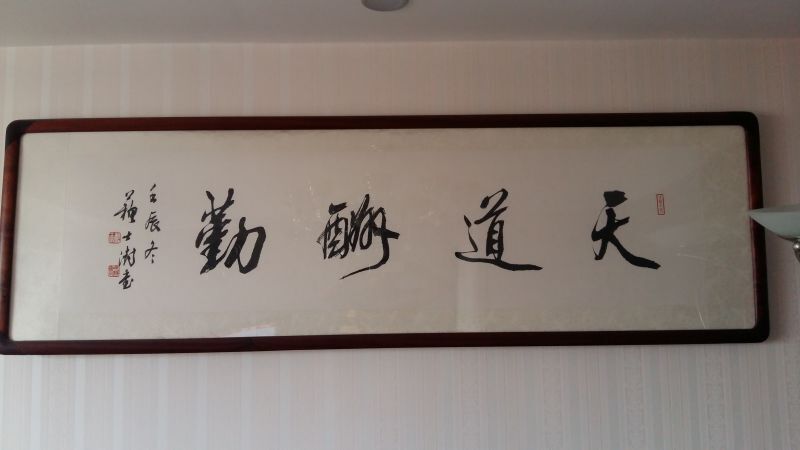 天道酬勤
壬辰冬
苏士澍书